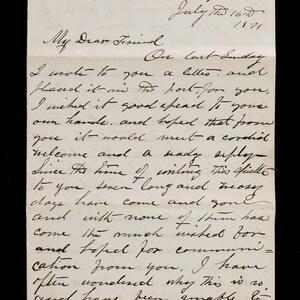 July th 16th
1871
My Dear Friend
On last Sunday
I wrote to you a letter and
placed it in the post for you,
I wished it good speed to yours
own hands, and hoped that from
you it would meet a cordial
welcome and a ready reply-
Since the time of writing this epistle
to you seven long and weary
days have come and gone
and with none of them has
come the much wished for
and hoped for communi-
cation from you, I have
often wondered why this is so,
and have been